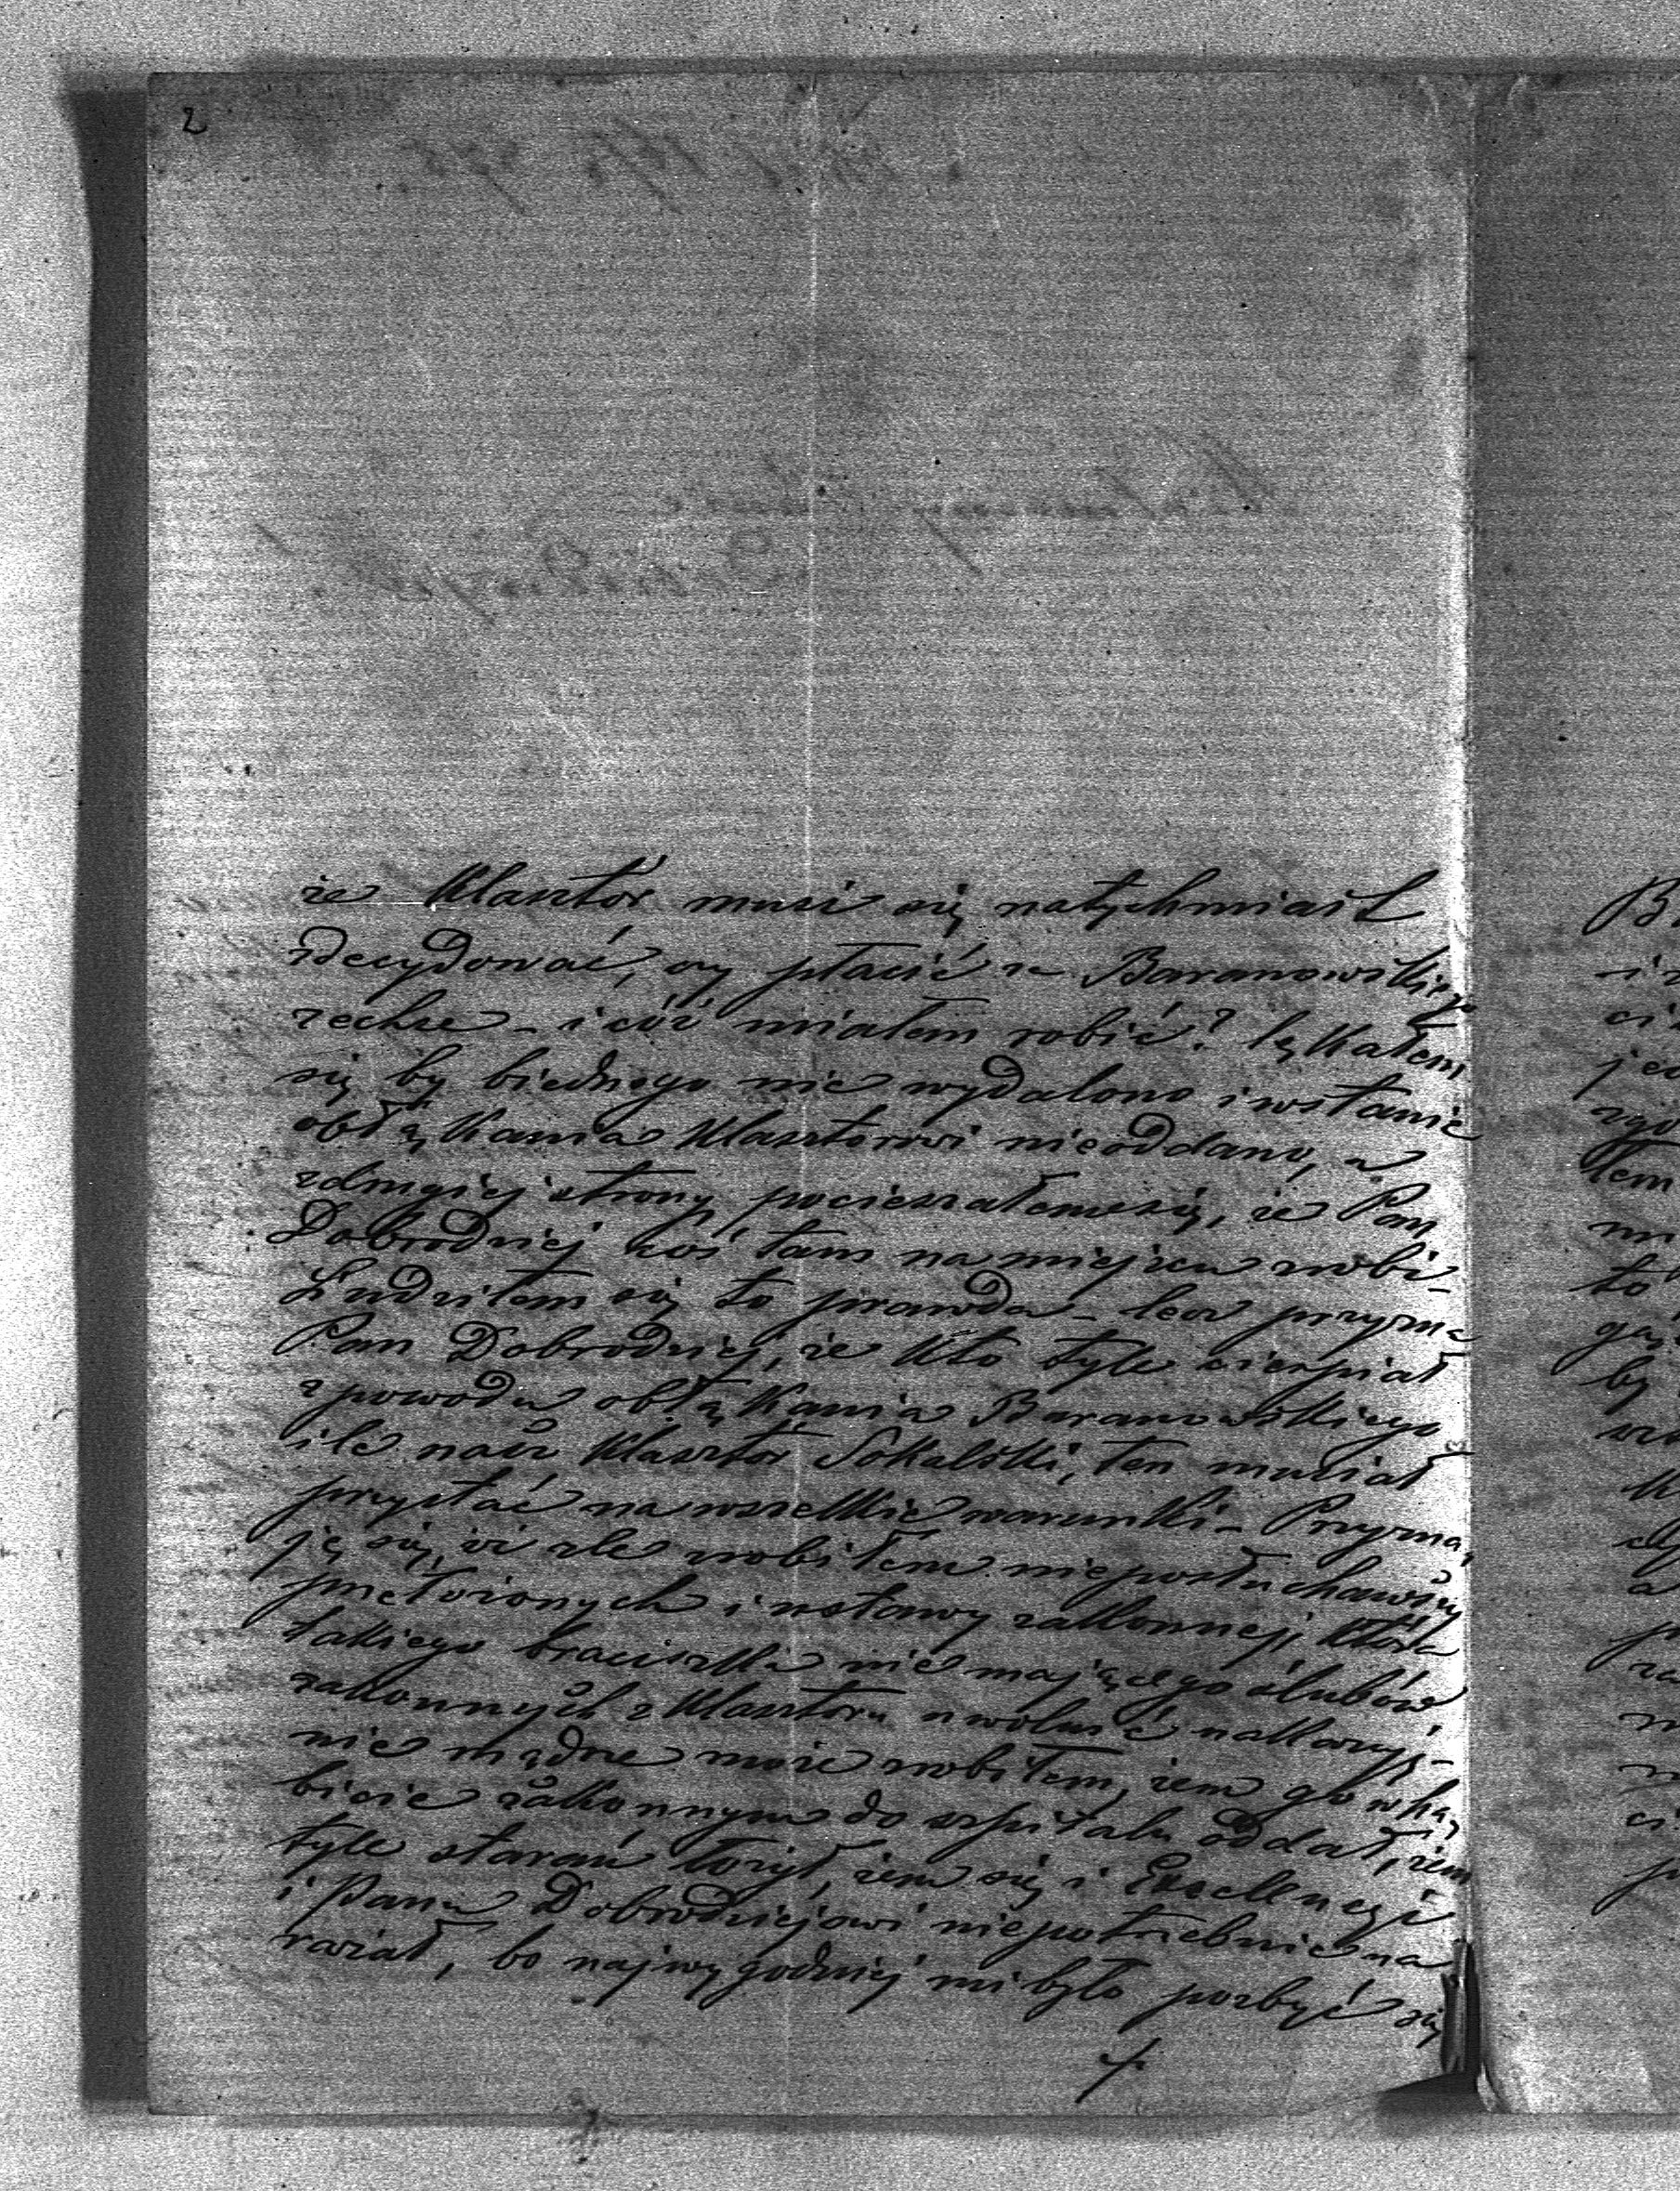 2
że Klasztór musi się natychmiast
zdecydować, czy płacić za Baranowskiego
zechce – i cóż miałem robić? lękałem
się by biednego nie wydalono i w stanie
obłąkania Klasztorowi nieoddano, a
zdrugiej strony pocieszałemsię, że Pan
Dobrodziej coś tam na miejscu zrobi –
Łudziłem się to prawda – lecz przyzna
Pan Dobrodziej, że Kto tyle cierpiał
z powodu obłąkania Baranowskiego
ile nasz Klasztór Sokalski, ten musiał
przystać na wszelkie warunki – Przyzna,
ję się, iż źle zrobiłem nieposłuchawszy
przełożonych i ustawy zakonnej, która
takiego braciszka nie mającego ślubów
zakonnych z Klasztoru uwolnić –
nie mądrze może zrobiłem, żem go w ha,
bicie zakonnym do szpitalu oddał, żem
tyle starań łożył, żem się i Exscelencji
i Panu Dobrodziejowi niepotrzebnie na
raział, bo najwygodniej mi było pozbyć się